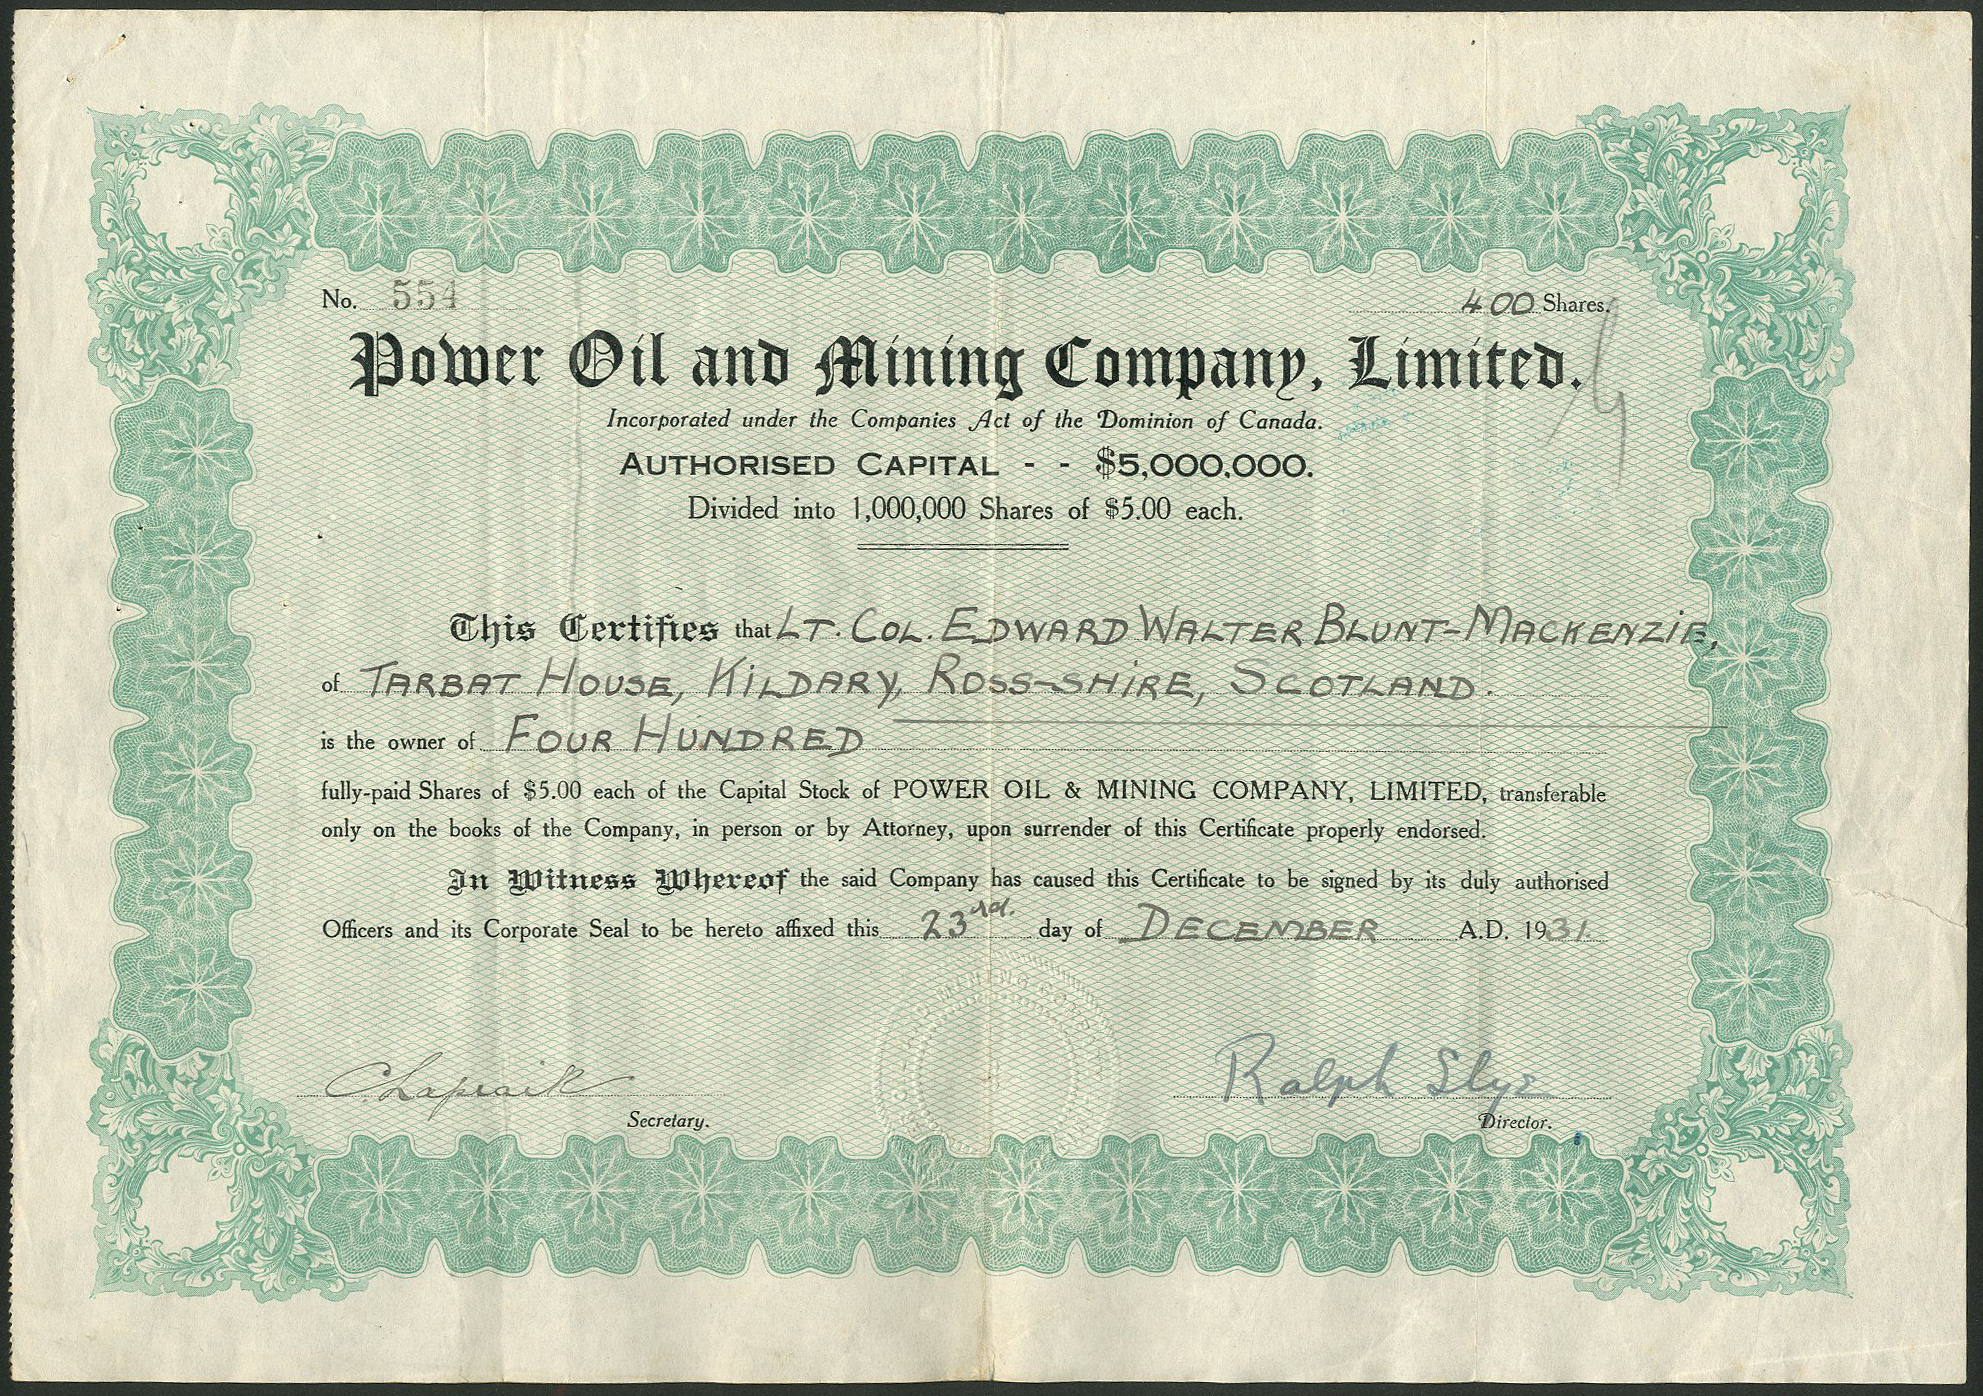 No. 554
400 Shares.
Power Oil and Mining Company, Limited.
Incorporated under the Companies Act of the Dominion of Canada.
AUTHORISED CAPITAL - - $5,000,000.
Divided into 1,000,000 Shares of $5.00 each.
This Certifies that LT. COL. EDWARD WALTER BLUNT-MACKENZIE,
of TARBAT HOUSE, KILDARY, ROSS-SHIRE, SCOTLAND.
is the owner of FOUR HUNDRED
fully-paid Shares of $5.00 each of the Capital Stock of POWER OIL & MINING COMPANY, LIMITED, transferable
only on the books of the Company, in person or by Attorney, upon surrender of this Certificate properly endorsed.
In Witness Whereof the said Company has caused this Certificate to be signed by its duly authorised
Officers and its Corporate Seal to be hereto affixed this 23rd. day of DECEMBER A.D. 1931.
C Lapraik
Ralph Slyz
Secretary.
Director.